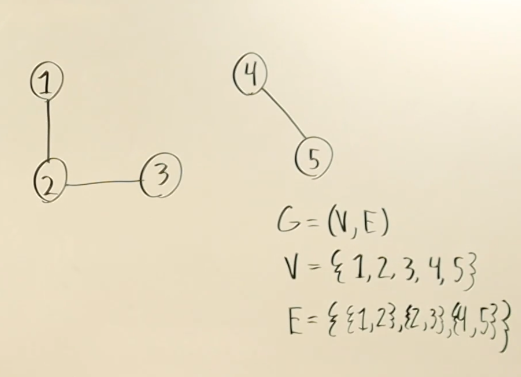 1
4
2
3
5
G = (V, E)
V = { 1, 2, 3, 4, 5}
E = { {1,2}, {2,3}, {4,5} }